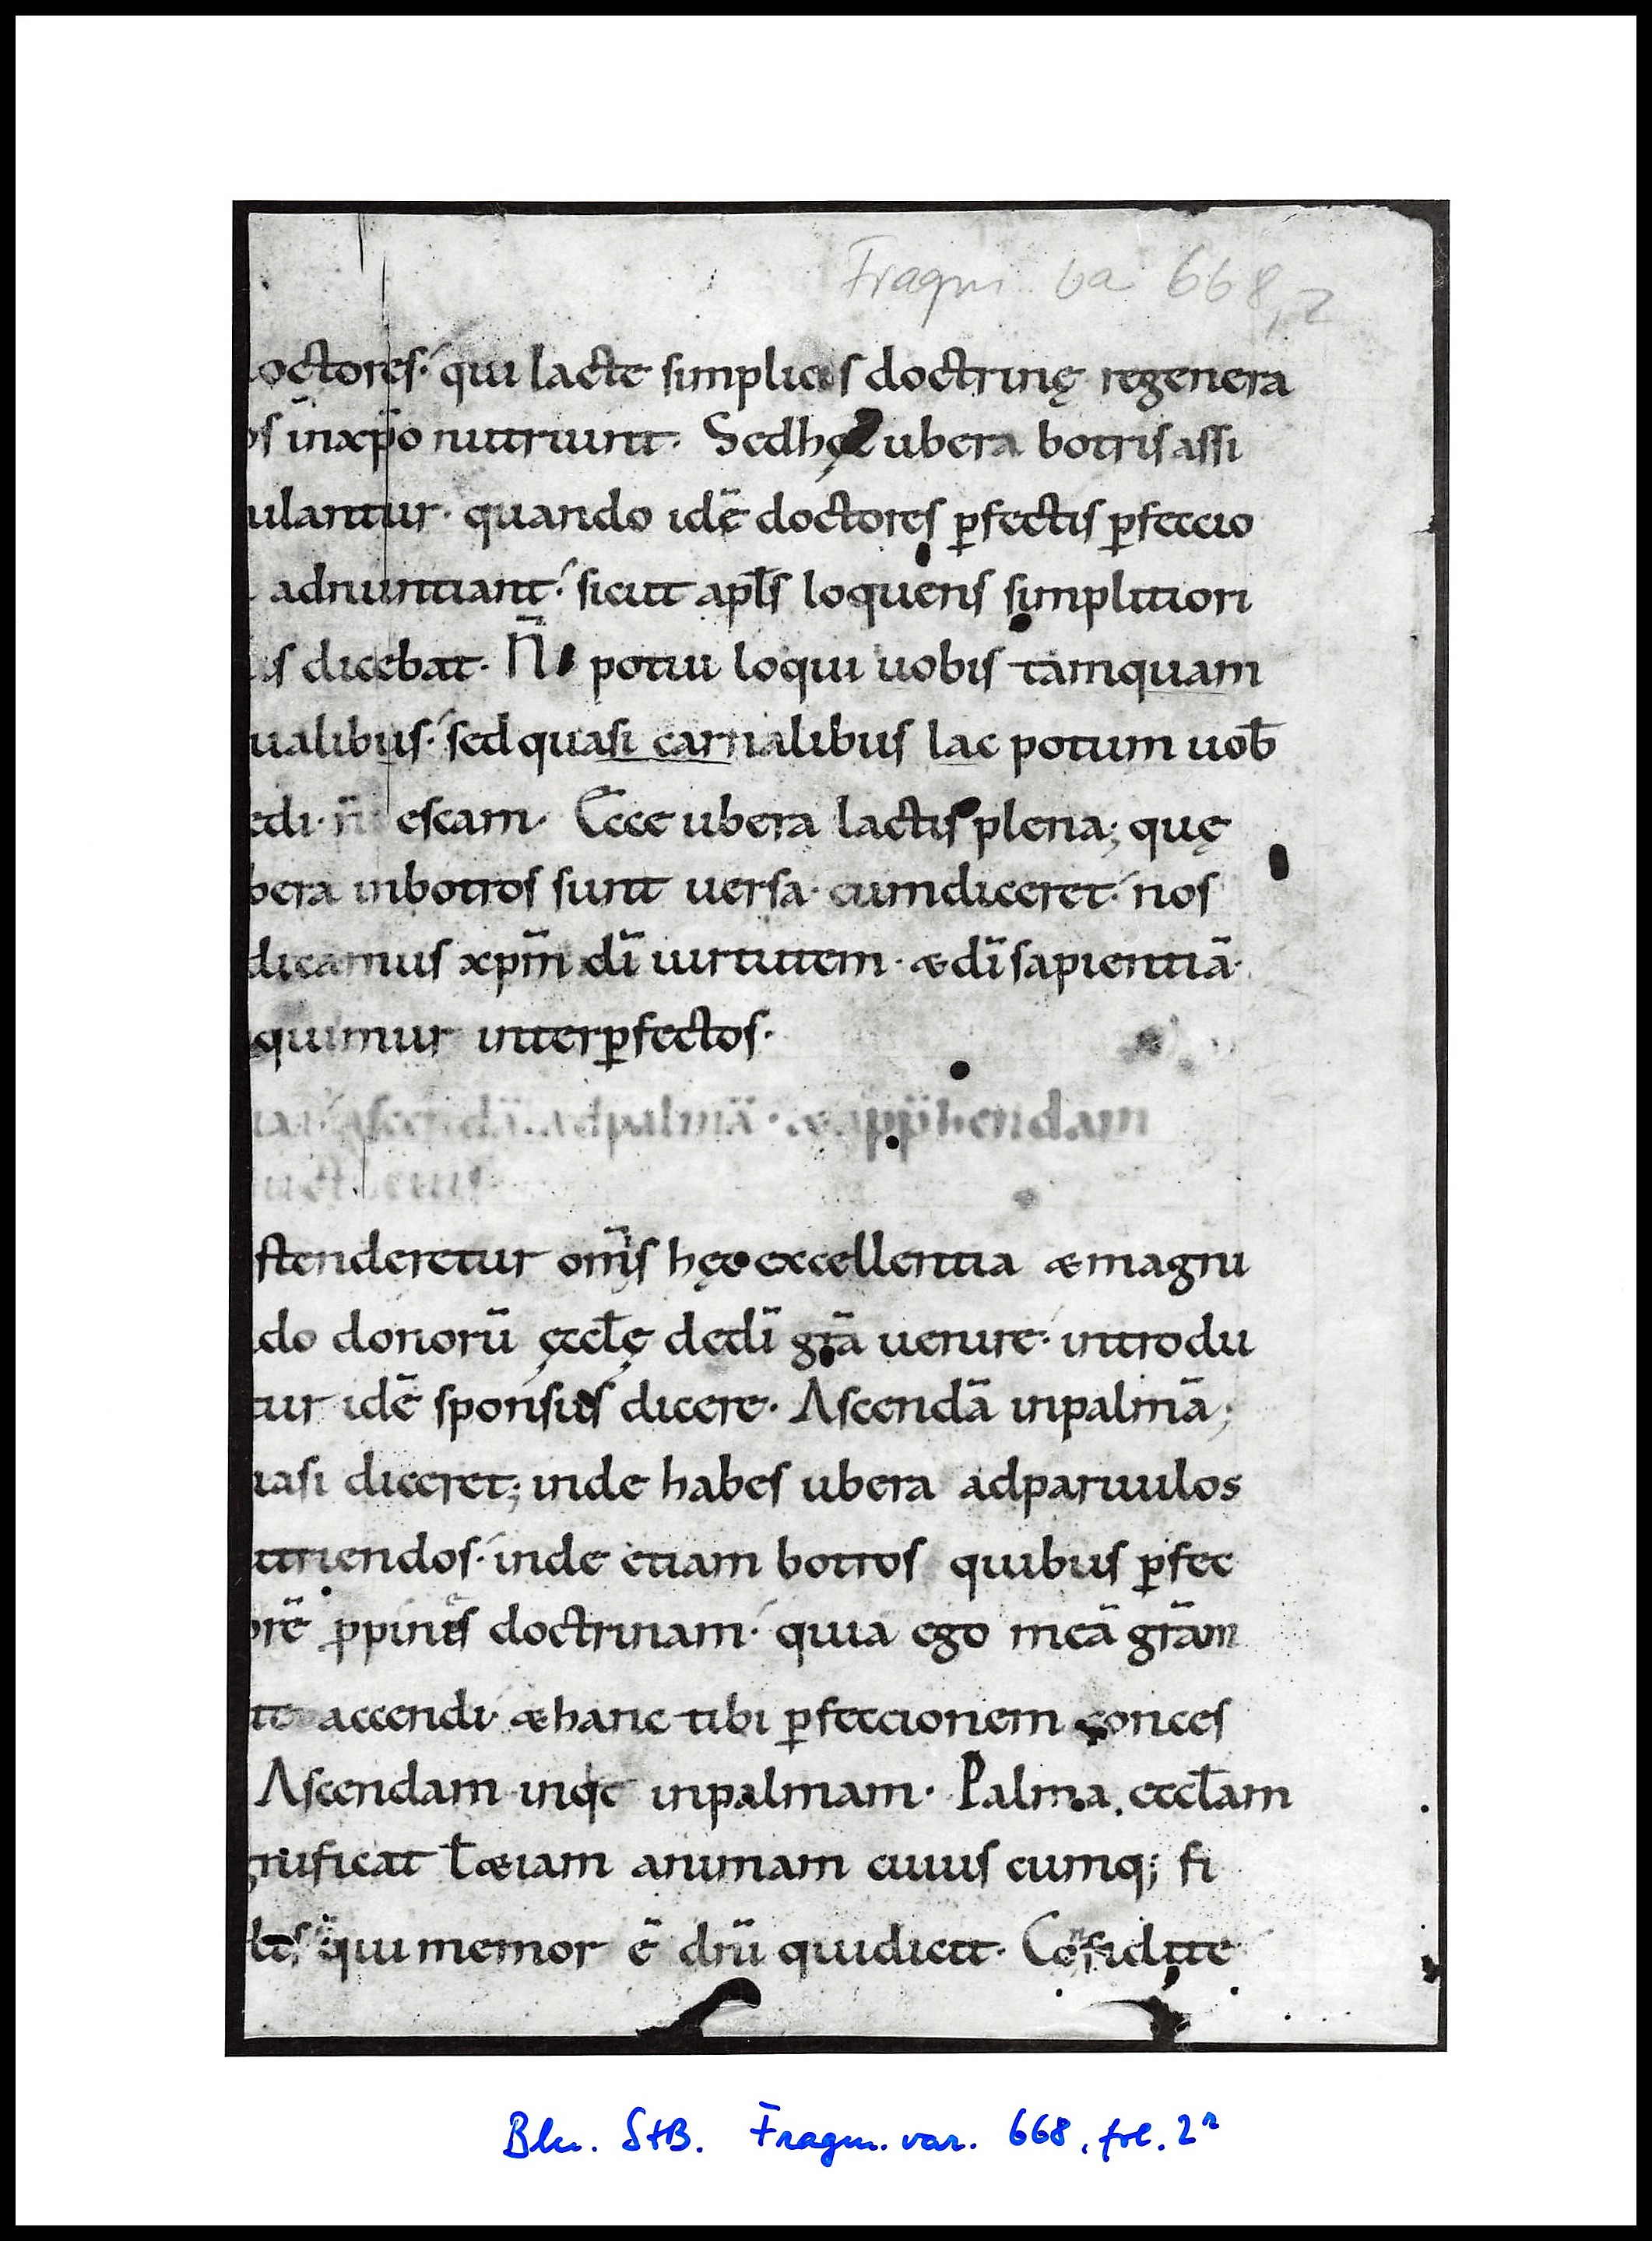 Fragm. va 668, 2
octores· qui lacte simplicis doctrinę regenera
os in xp̄o nutriunt· Sed hęc ubera botris assi
ulantur· quando idē doctores ꝑfectis ꝑfeccio
adnuntiant· sicut apl̄s loquens simplitiori
is dicebat· N̄ potui loqui uobis tamquam
ualibus· sed quasi carnalibus lac potum uob̄
edi· n̄ escam· Ecce ubera lactis plena; quę
bera in botros sunt uersa· cum diceret· nos
dicamus xp̄m dī uirtutem· & dī sapientiā·
quimur inter ꝑfectos·
ascendā ad palmā· & app̄hendam
stenderetur om̄is hęc excellentia & magni
do donorū ęccl̄ę de dī gr̄a uenire· introdu
tur idē sponsus dicere· Ascendā in palmā;
uasi diceret; inde habes ubera ad paruulos
utriendos· inde etiam botros quibus ꝑfec
orē ꝓpines doctrinam· quia ego meā gr̄am
te accendi· & hanc tibi ꝑfeccionem conces
Ascendam inq̇t in palmam· Palma eccl̄am
gnificat ł &iam animam cuius cumq; fi
lis qui memor ē dn̄i qui dicit· Confidite
Bln. StB. Fragm. var. 668, fol. 2ʳ